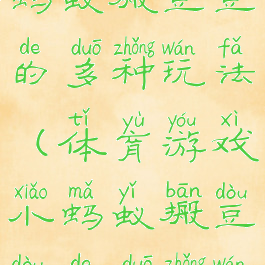 蚂蚁搬豆豆
de duō zhǒng wán fǎ
的多种玩法
tǐ yù yóu xì
（体育游戏
xiǎo mǎ yǐ bān dòu
小蚂蚁搬豆
dòu de duō zhǒng wán